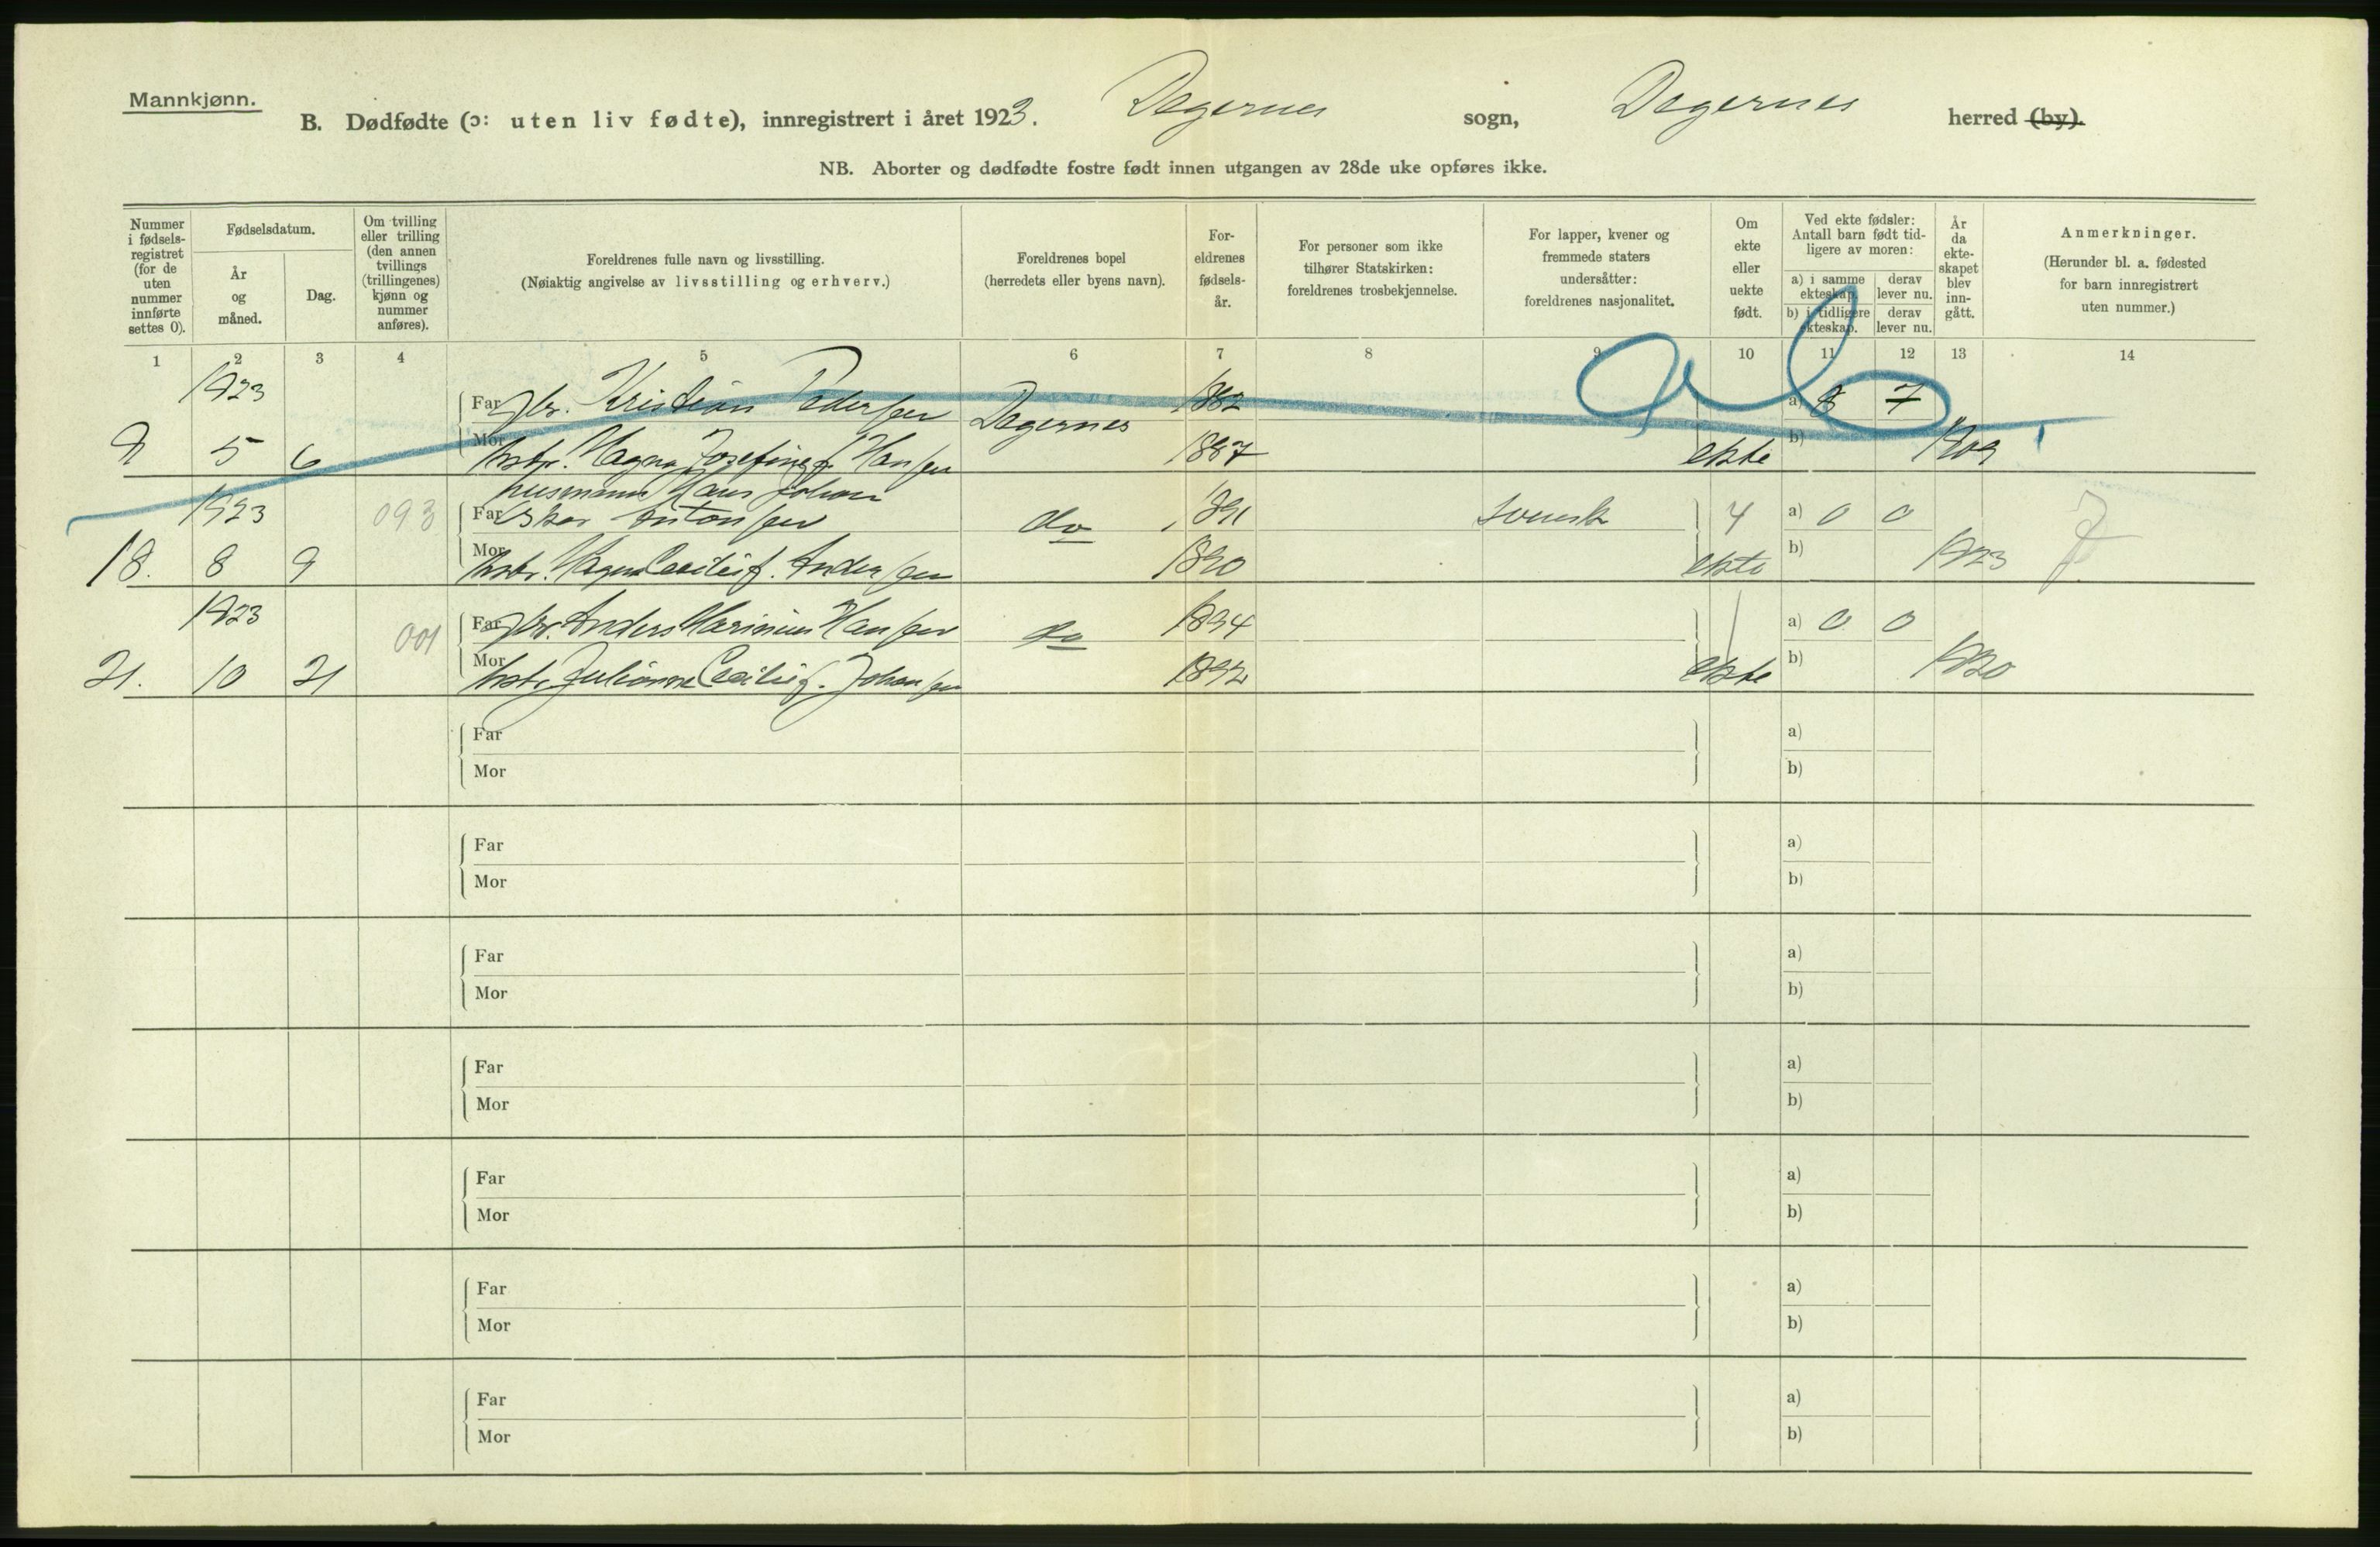 Mannkjønn.
B. Dødfødte (ɔ: uten liv fødte), innregistrert i året 1923. Degernes sogn, Degernes herred (by).
NB. Aborter og dødfødte fostre født innen utgangen av 28de uke opføres ikke.
Nummer i fødselsregistret (for de uten nummer innførte settes 0).
Fødselsdatum.
År og måned.
Dag.
Om tvilling eller trilling (den annen tvillings (trillingenes) kjønn og nummer anføres).
Foreldrenes fulle navn og livsstilling.
(Nøiaktig angivelse av livsstilling og erhverv.)
Foreldrenes bopel
(herredets eller byens navn).
Foreldrenes fødselsår.
For personer som ikke tilhører Statskirken: foreldrenes trosbekjennelse.
For lapper, kvener og fremmede staters undersåtter: foreldrenes nasjonalitet.
Om ekte eller uekte født.
Ved ekte fødsler: Antall barn født tidligere av moren:
a) i samme ekteskap. derav lever nu.
b) i tidligere ekteskap. derav lever nu.
År da ekteskapet blev inngått.
Anmerkninger.
(Herunder bl. a. fødested for barn innregistrert uten nummer.)
1 2 3 4 5 6 7 8 9 10 11 12 13 14
1923 Far gbr. Kristian Pedersen Degernes 1882 a) 8 7
9 5 6 Mor hustr. Magna Josefine f. Hansen 1887 ekte b) 1909
husmann Hans Johan
1923 093 Far Oskar Antonsen do 1891 svensk 4 a) 0 0
18. 8 9 Mor hustr. Magna Cecilie f. Andersen 1890 ekte b) 1923
1923 001 Far gbr. Anders Marinius Hansen do 1894 a) 0 0
21. 10 21 Mor hustr. Julianne Cecilie f. Johansen 1892 ekte b) 1920
Far a)
Mor b)
Far a)
Mor b)
Far a)
Mor b)
Far a)
Mor b)
Far a)
Mor b)
Far a)
Mor b)
Far a)
Mor b)